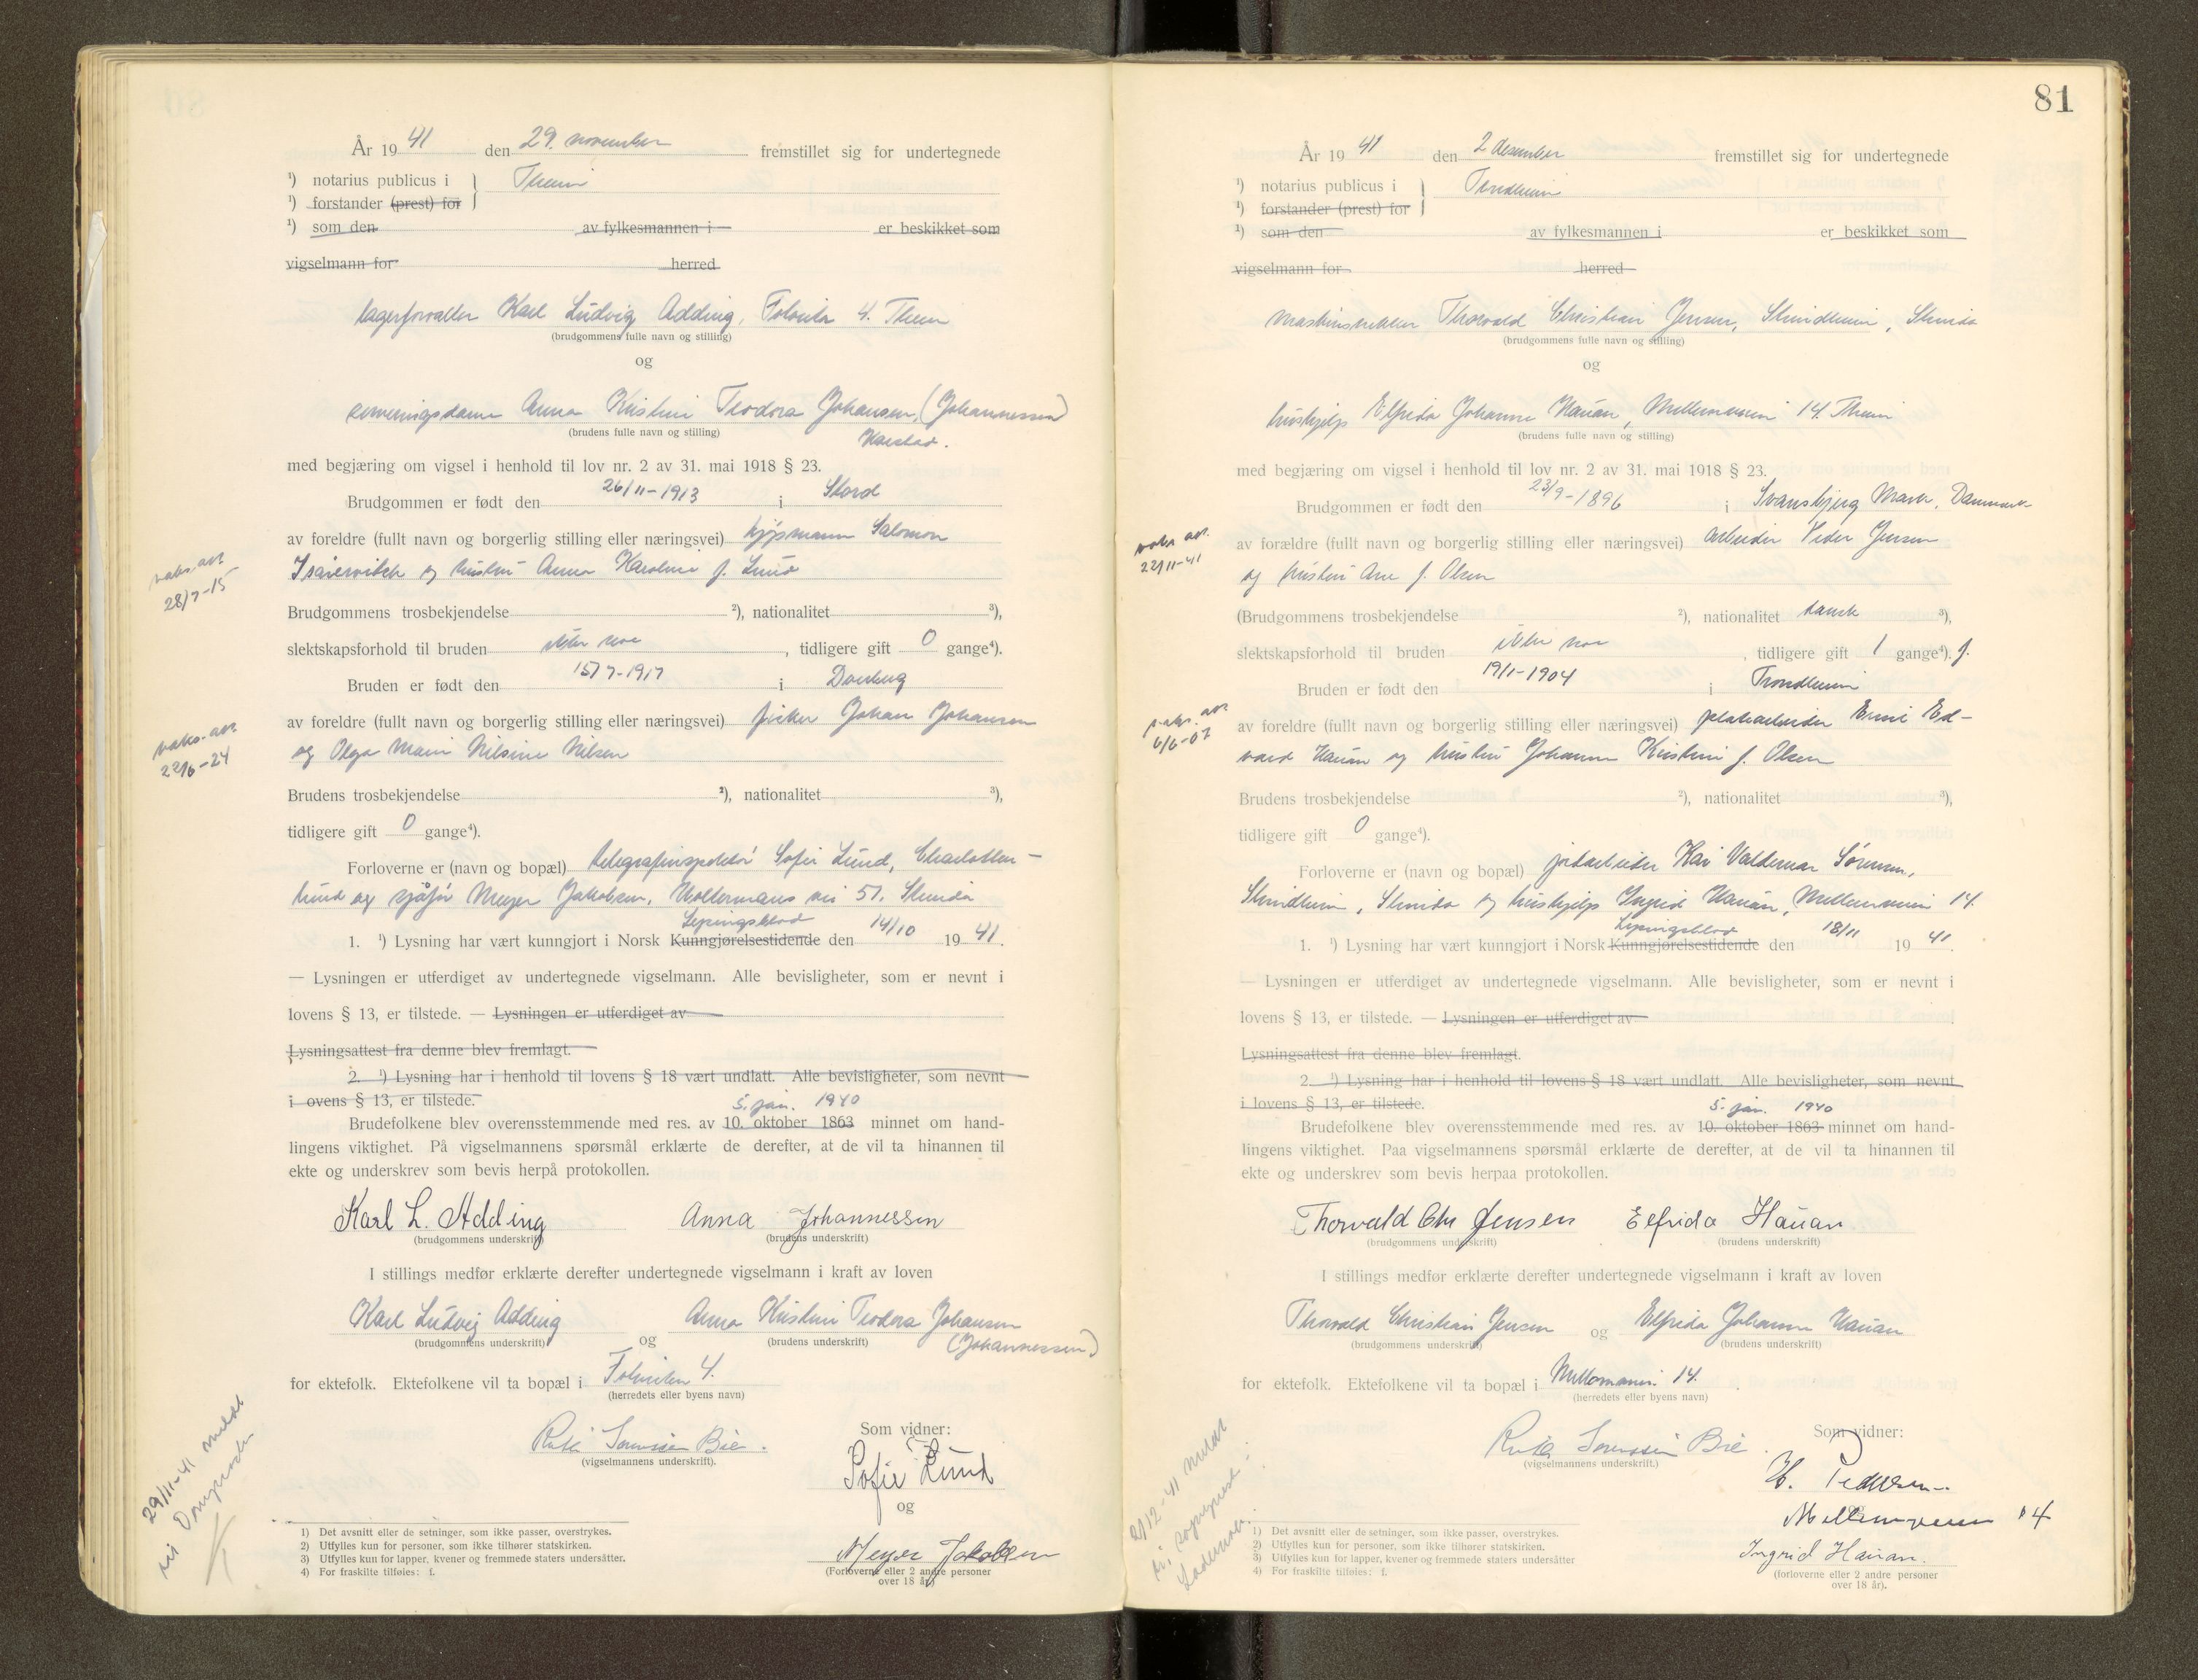 År 19 41 den 29. november fremstillet sig for undertegnede
¹) notarius publicus i
¹) forstander (prest) for
¹) som den av fylkesmannen i er beskikket som
vigselmann for herred
lagerforvalter Karl Ludvig Adding, 4.
(brudgommens fulle navn og stilling)
og
serveringsdame Anna Kristine Teodora Johansen, (Johannessen)
(brudens fulle navn og stilling)
med begjæring om vigsel i henhold til lov nr. 2 av 31. mai 1918 § 23.
Brudgommen er født den 26/11-1913 i Stord
av foreldre (fullt navn og borgerlig stilling eller næringsvei) kjøpmann Salomon
og hustru Anna Karoline f. Lund
vaks. att.
28/7-15
Brudgommens trosbekjendelse ²), nationalitet ³),
slektskapsforhold til bruden , tidligere gift 0 gange⁴).
Bruden er født den 15/7-1917 i
av foreldre (fullt navn og borgerlig stilling eller næringsvei) fisker Johan Johansen
og Olga Marie Nilsine Nilsen
vaks. att.
22/6-24
Brudens trosbekjendelse ²), nationalitet ³),
tidligere gift 0 gange⁴).
Forloverne er (navn og bopæl) Sofie Lund, Charlotten-
lund og sjåfør Meyer Jakobsen, vei 51. Strinda
Lysingsblad
1. ¹) Lysning har vært kunngjort i Norsk Kunngjørelsestidende den 14/10 19 41.
— Lysningen er utferdiget av undertegnede vigselmann. Alle bevisligheter, som er nevnt i
lovens § 13, er tilstede. — Lysningen er utferdiget av
Lysningsattest fra denne blev fremlagt.
2. ¹) Lysning har i henhold til lovens § 18 vært undlatt. Alle bevisligheter, som nevnt
i ovens § 13, er tilstede.
5. jan. 1940
Brudefolkene blev overensstemmende med res. av 10. oktober 1863 minnet om hand-
lingens viktighet. På vigselmannens spørsmål erklærte de derefter, at de vil ta hinannen til
ekte og underskrev som bevis herpå protokollen.
Karl L. Adding Anna Johannessen
(brudgommens underskrift) (brudens underskrift)
I stillings medfør erklærte derefter undertegnede vigselmann i kraft av loven
Karl Ludvig Adding og Anna Kristine Teodora Johansen
(Johannessen)
(brudgommens underskrift) (brudens underskrift)
for ektefolk. Ektefolkene vil ta bopæl i 4.
(herredets eller byens navn)
Bie.
(vigselmannens underskrift).
Som vidner:
Sofie Lund
og
Meyer Jakobsen
(Forloverne eller 2 andre personer
over 18 år)
29/11-41 meldt
1) Det avsnitt eller de setninger, som ikke passer, overstrykes.
2) Utfylles kun for personer, som ikke tilhører statskirken.
3) Utfylles kun for lapper, kvener og fremmede staters undersåtter.
4) For fraskilte tilføies: f.
81
År 19 41 den 2 desember fremstillet sig for undertegnede
¹) notarius publicus i Trondheim
¹) forstander (prest) for
¹) som den av fylkesmannen i er beskikket som
vigselmann for herred
Thorvald Christian Jensen, Strindheim, Strinda
(brudgommens fulle navn og stilling)
og
hushjelp Elfrida Johanne Hauan, 14.
(brudens fulle navn og stilling)
med begjæring om vigsel i henhold til lov nr. 2 av 31. mai 1918 § 23.
Brudgommen er født den 23/9-1896 i Svansbjerg Mark, Danmark
av forældre (fullt navn og borgerlig stilling eller næringsvei) arbeider Peder Jensen
og hustru Ane f. Olsen
vaks. att.
22/11-41
(Brudgommens trosbekjendelse ²), nationalitet dansk ³),
slektskapsforhold til bruden , tidligere gift 1 gange⁴). f.
Bruden er født den 19/1-1904 i Trondheim
av foreldre (fullt navn og borgerlig stilling eller næringsvei) Ed-
vard Hauan og hustru Johanne Kristine f. Olsen
vaks. att.
6/6-07
Brudens trosbekjendelse ²), nationalitet ³),
tidligere gift 0 gange⁴).
Forloverne er (navn og bopæl) jordarbeider Kai Valdemar Sørensen,
Strindheim, Strinda og hushjelp Ingrid Hauan, 14.
Lysingsblad
1. ¹) Lysning har vært kunngjort i Norsk Kunngjørelsestidende den 18/11 19 41.
— Lysningen er utferdiget av undertegnede vigselmann. Alle bevisligheter, som er nevnt i
lovens § 13, er tilstede. — Lysningen er utferdiget av
Lysningsattest fra denne blev fremlagt.
2. ¹) Lysning har i henhold til lovens § 18 vært undlatt. Alle bevisligheter, som nevnt
i lovens § 13, er tilstede.
5. jan. 1940
Brudefolkene blev overensstemmende med res. av 10. oktober 1863 minnet om hand-
lingens viktighet. Paa vigselmannens spørsmål erklærte de derefter, at de vil ta hinannen til
ekte og underskrev som bevis herpaa protokollen.
Thorvald Chr Jensen Elfrida Hauan
(brudgommens underskrift) (brudens underskrift)
I stillings medfør erklærte derefter undertegnede vigselmann i kraft av loven
Thorvald Christian Jensen og Elfrida Johanne Hauan
(brudgommens underskrift) (brudens underskrift)
for ektefolk. Ektefolkene vil ta bopæl i 14.
(herredets eller byens navn)
Bie.
(vigselmannens underskrift.)
Som vidner:
H. Pedersen
14
Ingrid Hauan.
(forloverne eller 2 andre personer
over 18 år).
2/12-41 meldt
1) Det avsnitt eller de setninger, som ikke passer, overstrykes.
2) Utfylles kun for personer, som ikke tilhører statskirken.
3) Utfylles kun for lapper, kvener og fremmede staters undersåtter
4) For fraskilte tilføies: f.